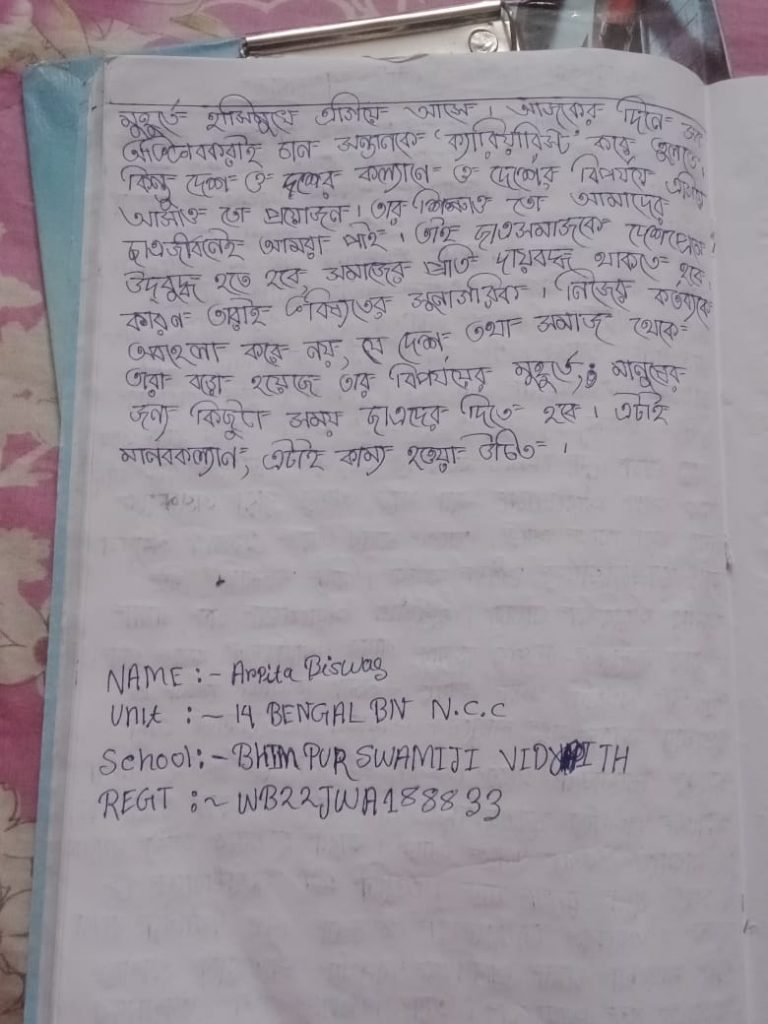 মুহূর্তে হাসিমুখে এগিয়ে আসে। আজকের দিনে সব
অভিভাবকরাই চান সন্তানকে 'ক্যারিয়ারিস্ট' করে তুলতে।
কিন্তু দেশ ও দশের কল্যানে ও দেশের বিপর্যয়ে এগিয়ে
আসাও তো প্রয়োজন। তার শিক্ষাও তো আমাদের
ছাত্রজীবনেই আমরা পাই। তাই ছাত্রসমাজকে দেশপ্রেমে
উদ্‌বুদ্ধ হতে হবে, সমাজের প্রতি দায়বদ্ধ থাকতে হবে
কারন তারাই ভবিষ্যতের সুনাগরিক। নিজের কর্তব্যকে
অবহেলা করে নয়, যে দেশ তথা সমাজ থেকে
তারা বড়ো হয়েছে তার বিপর্যয়ের মুহূর্তে, মানুষের
জন্য কিছুটা সময় ছাত্রদের দিতে হবে। এটাই
মানবকল্যান, এটাই কাম্য হওয়া উচিত।
NAME :- Arpita Biswas
Unit :- 14 BENGAL BN N.C.C
School:- BHIMPUR SWAMIJI
REGT :- WB22JWA188833